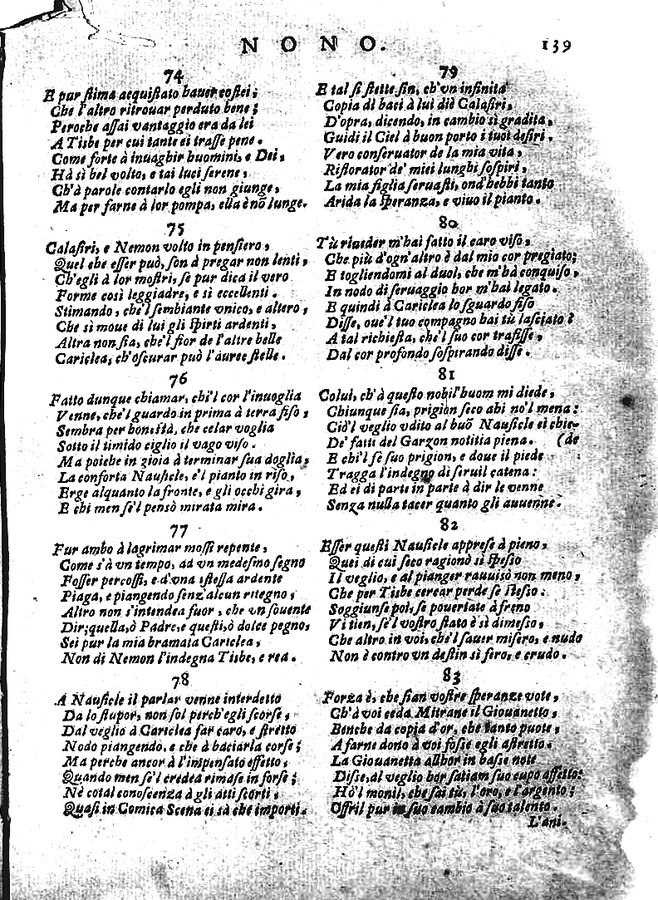 NONO. 139
74
E pur stima acquistato hauer costei;
Che l'altro ritrouar perduto bene;
Peroche assai vantaggio era da lei
A Tisbe per cui tante ei trasse pene.
Come forte à inuaghir huomini, e Dei,
Hà sì bel volto, e tai luci serene,
Ch'à parole contarlo egli non giunge,
Ma per farne à lor pompa, ella è nõ lunge.
75
Calasiri, e Nemon volto in pensiero,
Quel che esser può, son à pregar non lenti,
Ch'egli à lor mostri, se pur dica il vero
Forme così leggiadre, e sì eccellenti.
Stimando, che'l sembiante vnico, e altero,
Che si moue di lui gli spirti ardenti,
Altra non sia, che'l fior de l'altre belle
Cariclea, ch'oscurar può l'auree stelle.
76
Fatto dunque chiamar, chi'l cor l'inuoglia
Venne, che'l guardo in prima à terra fiso,
Sembra per honestà, che celar voglia
Sotto il timido ciglio il vago viso.
Ma poiche in gioia à terminar sua doglia,
La conforta Nausicle, e'l pianto in riso,
Erge alquanto la fronte, e gli occhi gira,
E chi men se'l pensò mirata mira.
77
Fur ambo à lagrimar mossi repente,
Come s'à vn tempo, ad vn medesmo segno
Fosser percossi, e d'vna istessa ardente
Piaga, e piangendo senz'alcun ritegno,
Altro non s'intendea fuor, che vn souente
Dir; quella, ò Padre, e questi, ò dolce pegno,
Sei pur la mia bramata Cariclea,
Non di Nemon l'indegna Tisbe, e rea.
78
A Nausicle il parlar venne interdetto
Da lo stupor, non sol perch'egli scorse,
Dal veglio à Cariclea far caro, e stretto
Nodo piangendo, e che à baciarla corse;
Ma perche ancor à l'impensato effetto,
Quando men se'l credea rimase in forse;
Nè cotal conoscenza à gli atti scorti,
Quasi in Comica Scena ei sà che importi.
79
E tal si stette sin, ch'vn infinita
Copia di baci à lui diè Calasiri,
D'opra, dicendo, in cambio sì gradita,
Guidi il Ciel à buon porto i tuoi desiri.
Vero conseruator de la mia vita,
Ristorator de' miei lunghi sospiri,
La mia figlia seruasti, ond'hebbi tanto
Arida la speranza, e viuo il pianto.
80
Tù riueder m'hai fatto il caro viso,
Che più d'ogn'altro è dal mio cor pregiato;
E togliendomi al duol, che m'hà conquiso,
In nodo di seruaggio hor m'hai legato.
E quindi à Cariclea lo sguardo fiso
Disse, oue'l tuo compagno hai tù lasciato?
A tal richiesta, che'l suo cor trafisse,
Dal cor profondo sospirando disse.
81
Colui, ch'à questo nobil'huom mi diede,
Chiunque sia, prigion seco abi no'l mena:
Ciò'l veglio vdito al buõ Nausicle ei chie-
De' fatti del Garzon notitia piena. (de
E chi'l fè suo prigion, e doue il piede
Tragga l'indegno di seruil catena:
Ed ei di parte in parte à dir le venne
Senza nulla tacer quanto gli auuenne.
82
Esser questi Nausicle apprese à pieno,
Quei di cui seco ragionò sì spesso
Il veglio, e al pianger rauuisò non meno,
Che per Tisbe cercar perde se stesso.
Soggiunse poi, se pouertate à freno
Vi tien, se'l vostro stato è sì dimesso,
Che altro in voi, che'l sauer misero, e nudo
Non è contro vn destin sì fero, e crudo.
83
Forza è, che sian vostre speranze vote,
Ch'à voi ceda Mitrane il Giouanetto,
Benche da copia d'or, che tanto puote,
A farne dono à voi fosse egli astretto.
La Giouanetta allhor in basse note
Disse, al veglio hor satiam suo cupo affetto:
Hò'l monil, che sai tù, l'oro, e l'argento;
Offril pur in suo cambio à suo talento.
L'ani-